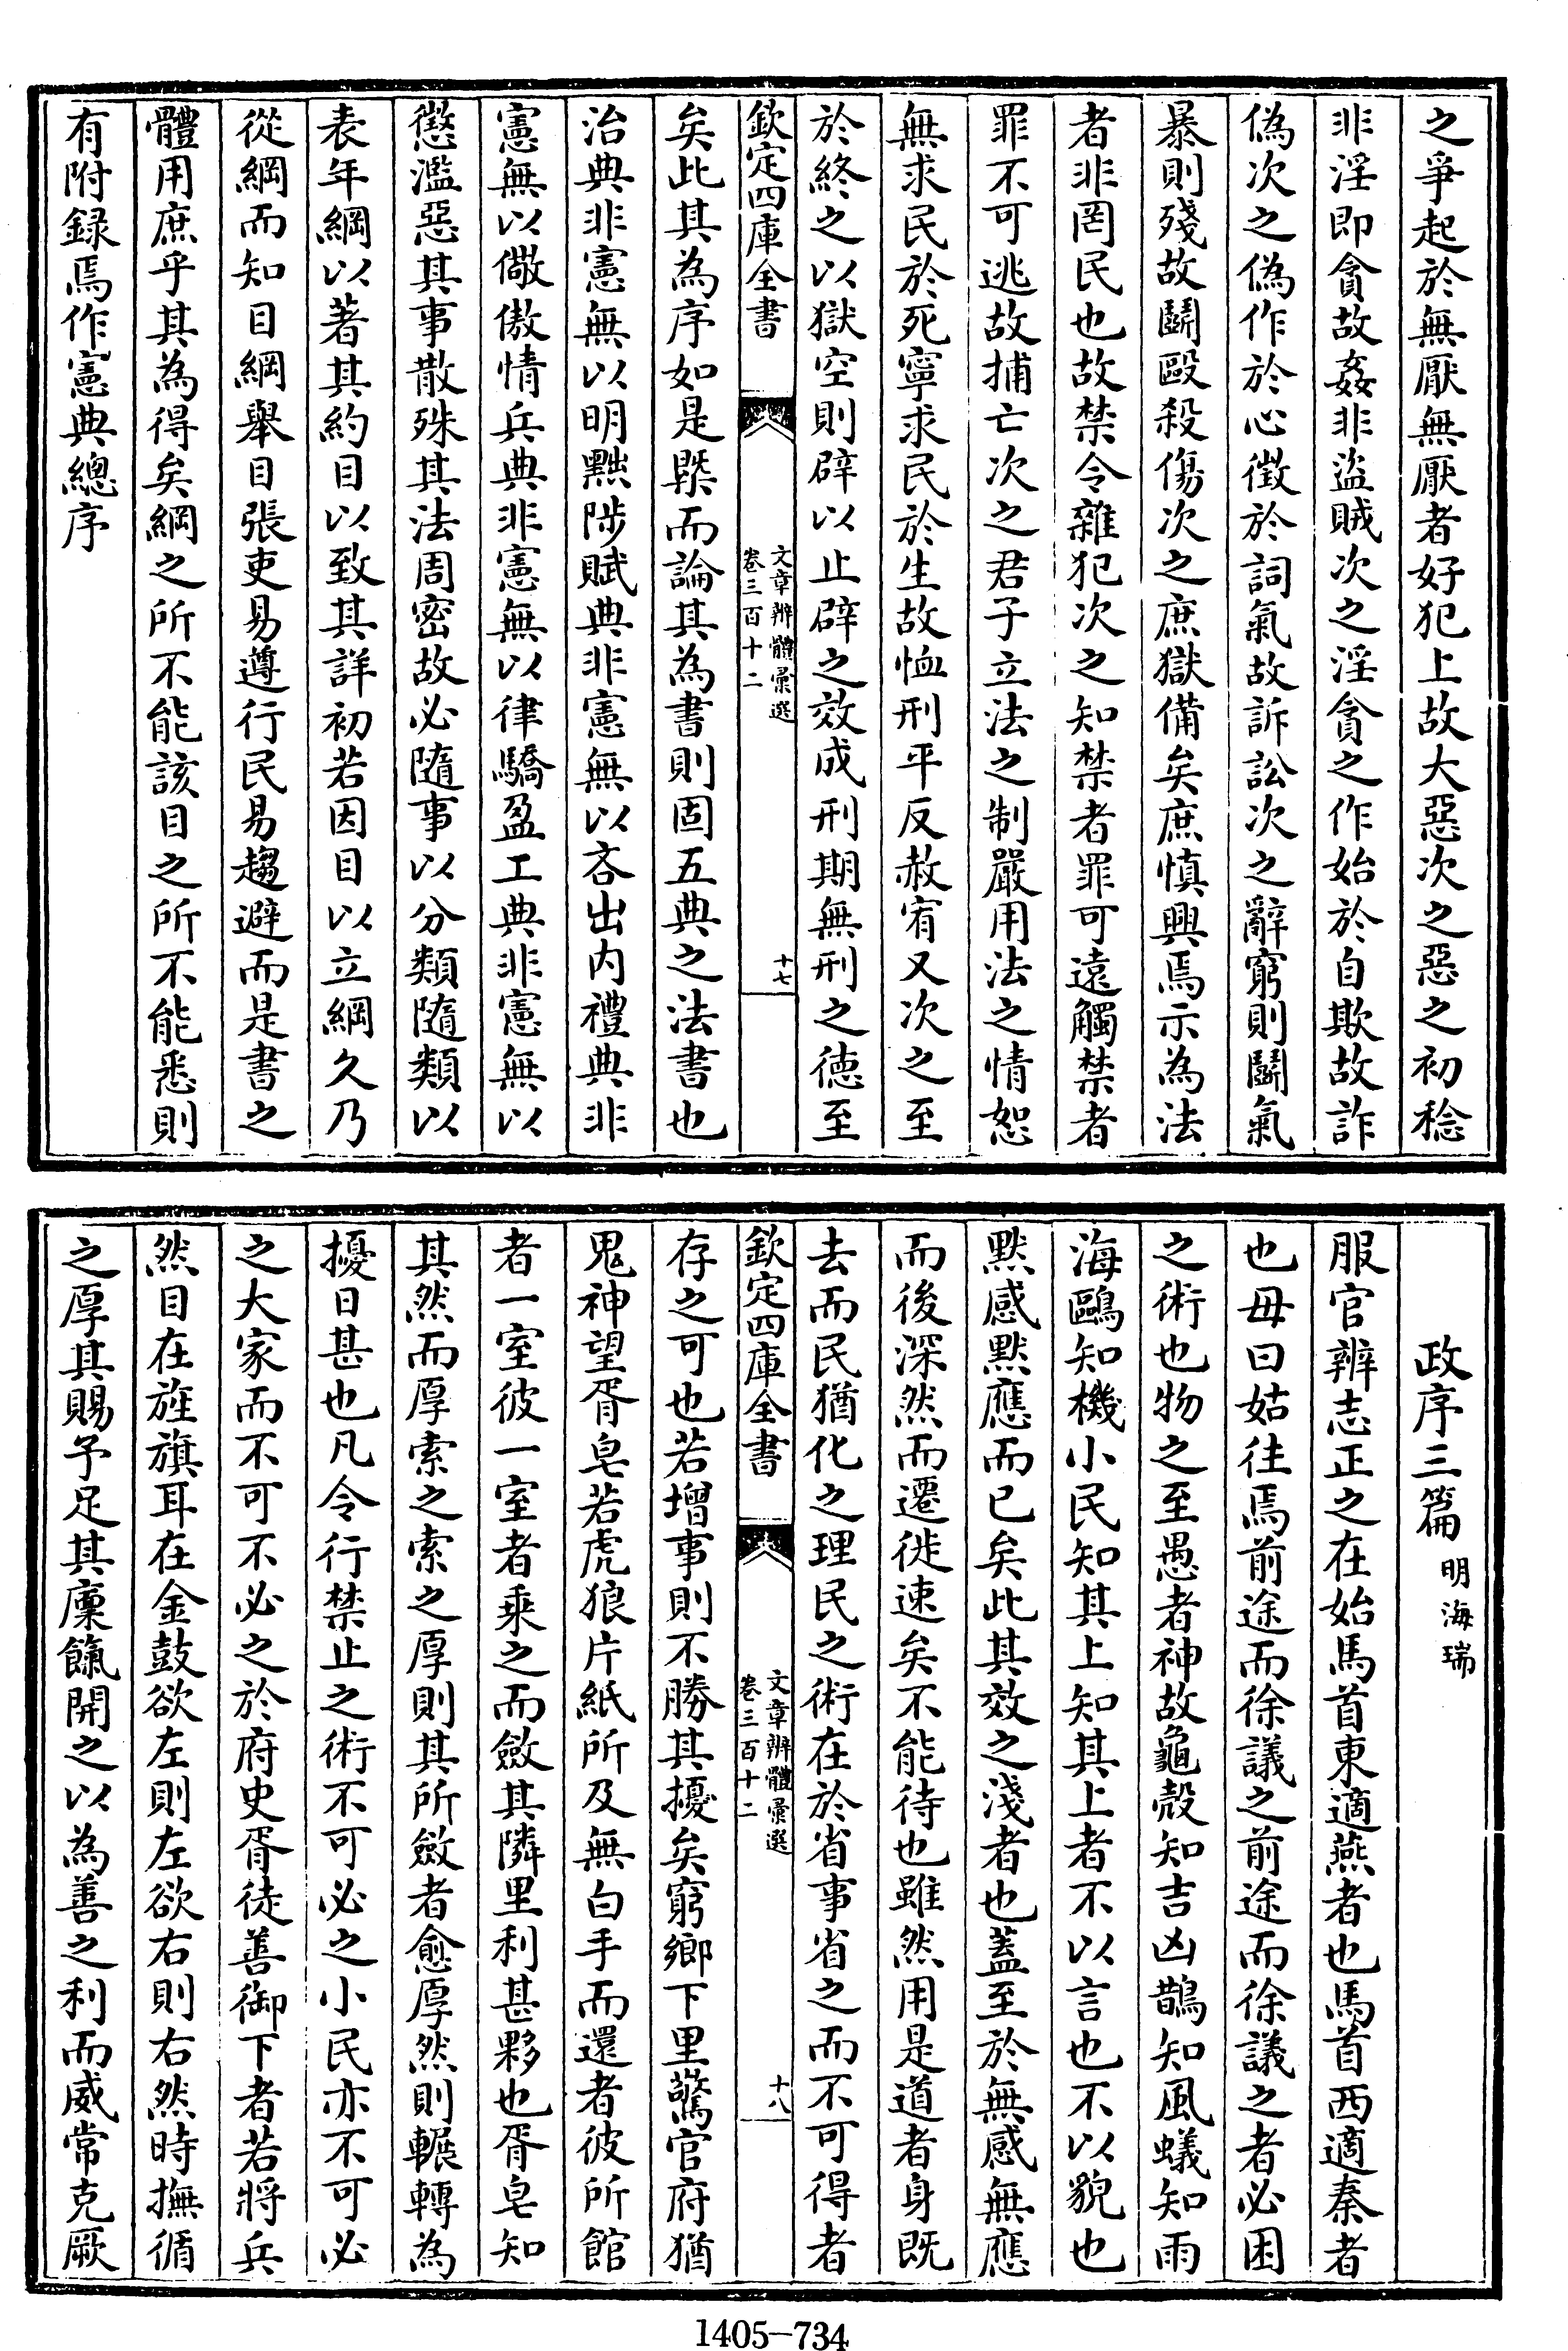 之爭起於無厭無厭者好犯上故大惡次之惡之初稔
非淫即貪故姦非盜賊次之淫貪之作始於自欺故詐
偽次之偽作於心徵於詞氣故訴訟次之辭窮則鬭氣
暴則殘故鬭毆殺傷次之庶獄備矣庶慎興焉示為法
者非罔民也故禁令雜犯次之知禁者罪可遠觸禁者
罪不可逃故捕亡次之君子立法之制嚴用法之情恕
無求民於死寧求民於生故恤刑平反赦宥又次之至
於終之以獄空則辟以止辟之效成刑期無刑之德至
欽定四庫全書
文章辨體彙選
卷三百十二
十七
矣此其為序如是槩而論其為書則固五典之法書也
治典非憲無以明黜陟賦典非憲無以吝出内禮典非
憲無以儆傲情兵典非憲無以律驕盈工典非憲無以
懲濫惡其事散殊其法周密故必隨事以分類隨類以
表年綱以著其約目以致其詳初若因目以立綱久乃
從綱而知目綱舉目張吏易遵行民易趨避而是書之
體用庶乎其為得矣綱之所不能該目之所不能悉則
有附録焉作憲典總序
政序三篇 明海瑞
服官辨志正之在始馬首東適燕者也馬首西適秦者
也毋曰姑往焉前途而徐議之前途而徐議之者必困
之術也物之至愚者神故龜殼知吉凶鵲知風蟻知雨
海鷗知機小民知其上知其上者不以言也不以貌也
默感默應而已矣此其效之淺者也蓋至於無感無應
而後深然而遷徙速矣不能待也雖然用是道者身既
去而民猶化之理民之術在於省事省之而不可得者
欽定四庫全書
文章辨體彙選
卷三百十二
十八
存之可也若增事則不勝其擾矣窮鄉下里驚官府猶
鬼神望胥皂若虎狼片紙所及無白手而還者彼所館
者一室彼一室者乘之而斂其隣里利甚夥也胥皂知
其然而厚索之索之厚則其所斂者愈厚然則輾轉為
擾日甚也凡令行禁止之術不可必之小民亦不可必
之大家而不可不必之於府史胥徒善御下者若將兵
然目在旌旗耳在金鼓欲左則左欲右則右然時撫循
之厚其賜予足其廩餼開之以為善之利而威常克厥
1405-734